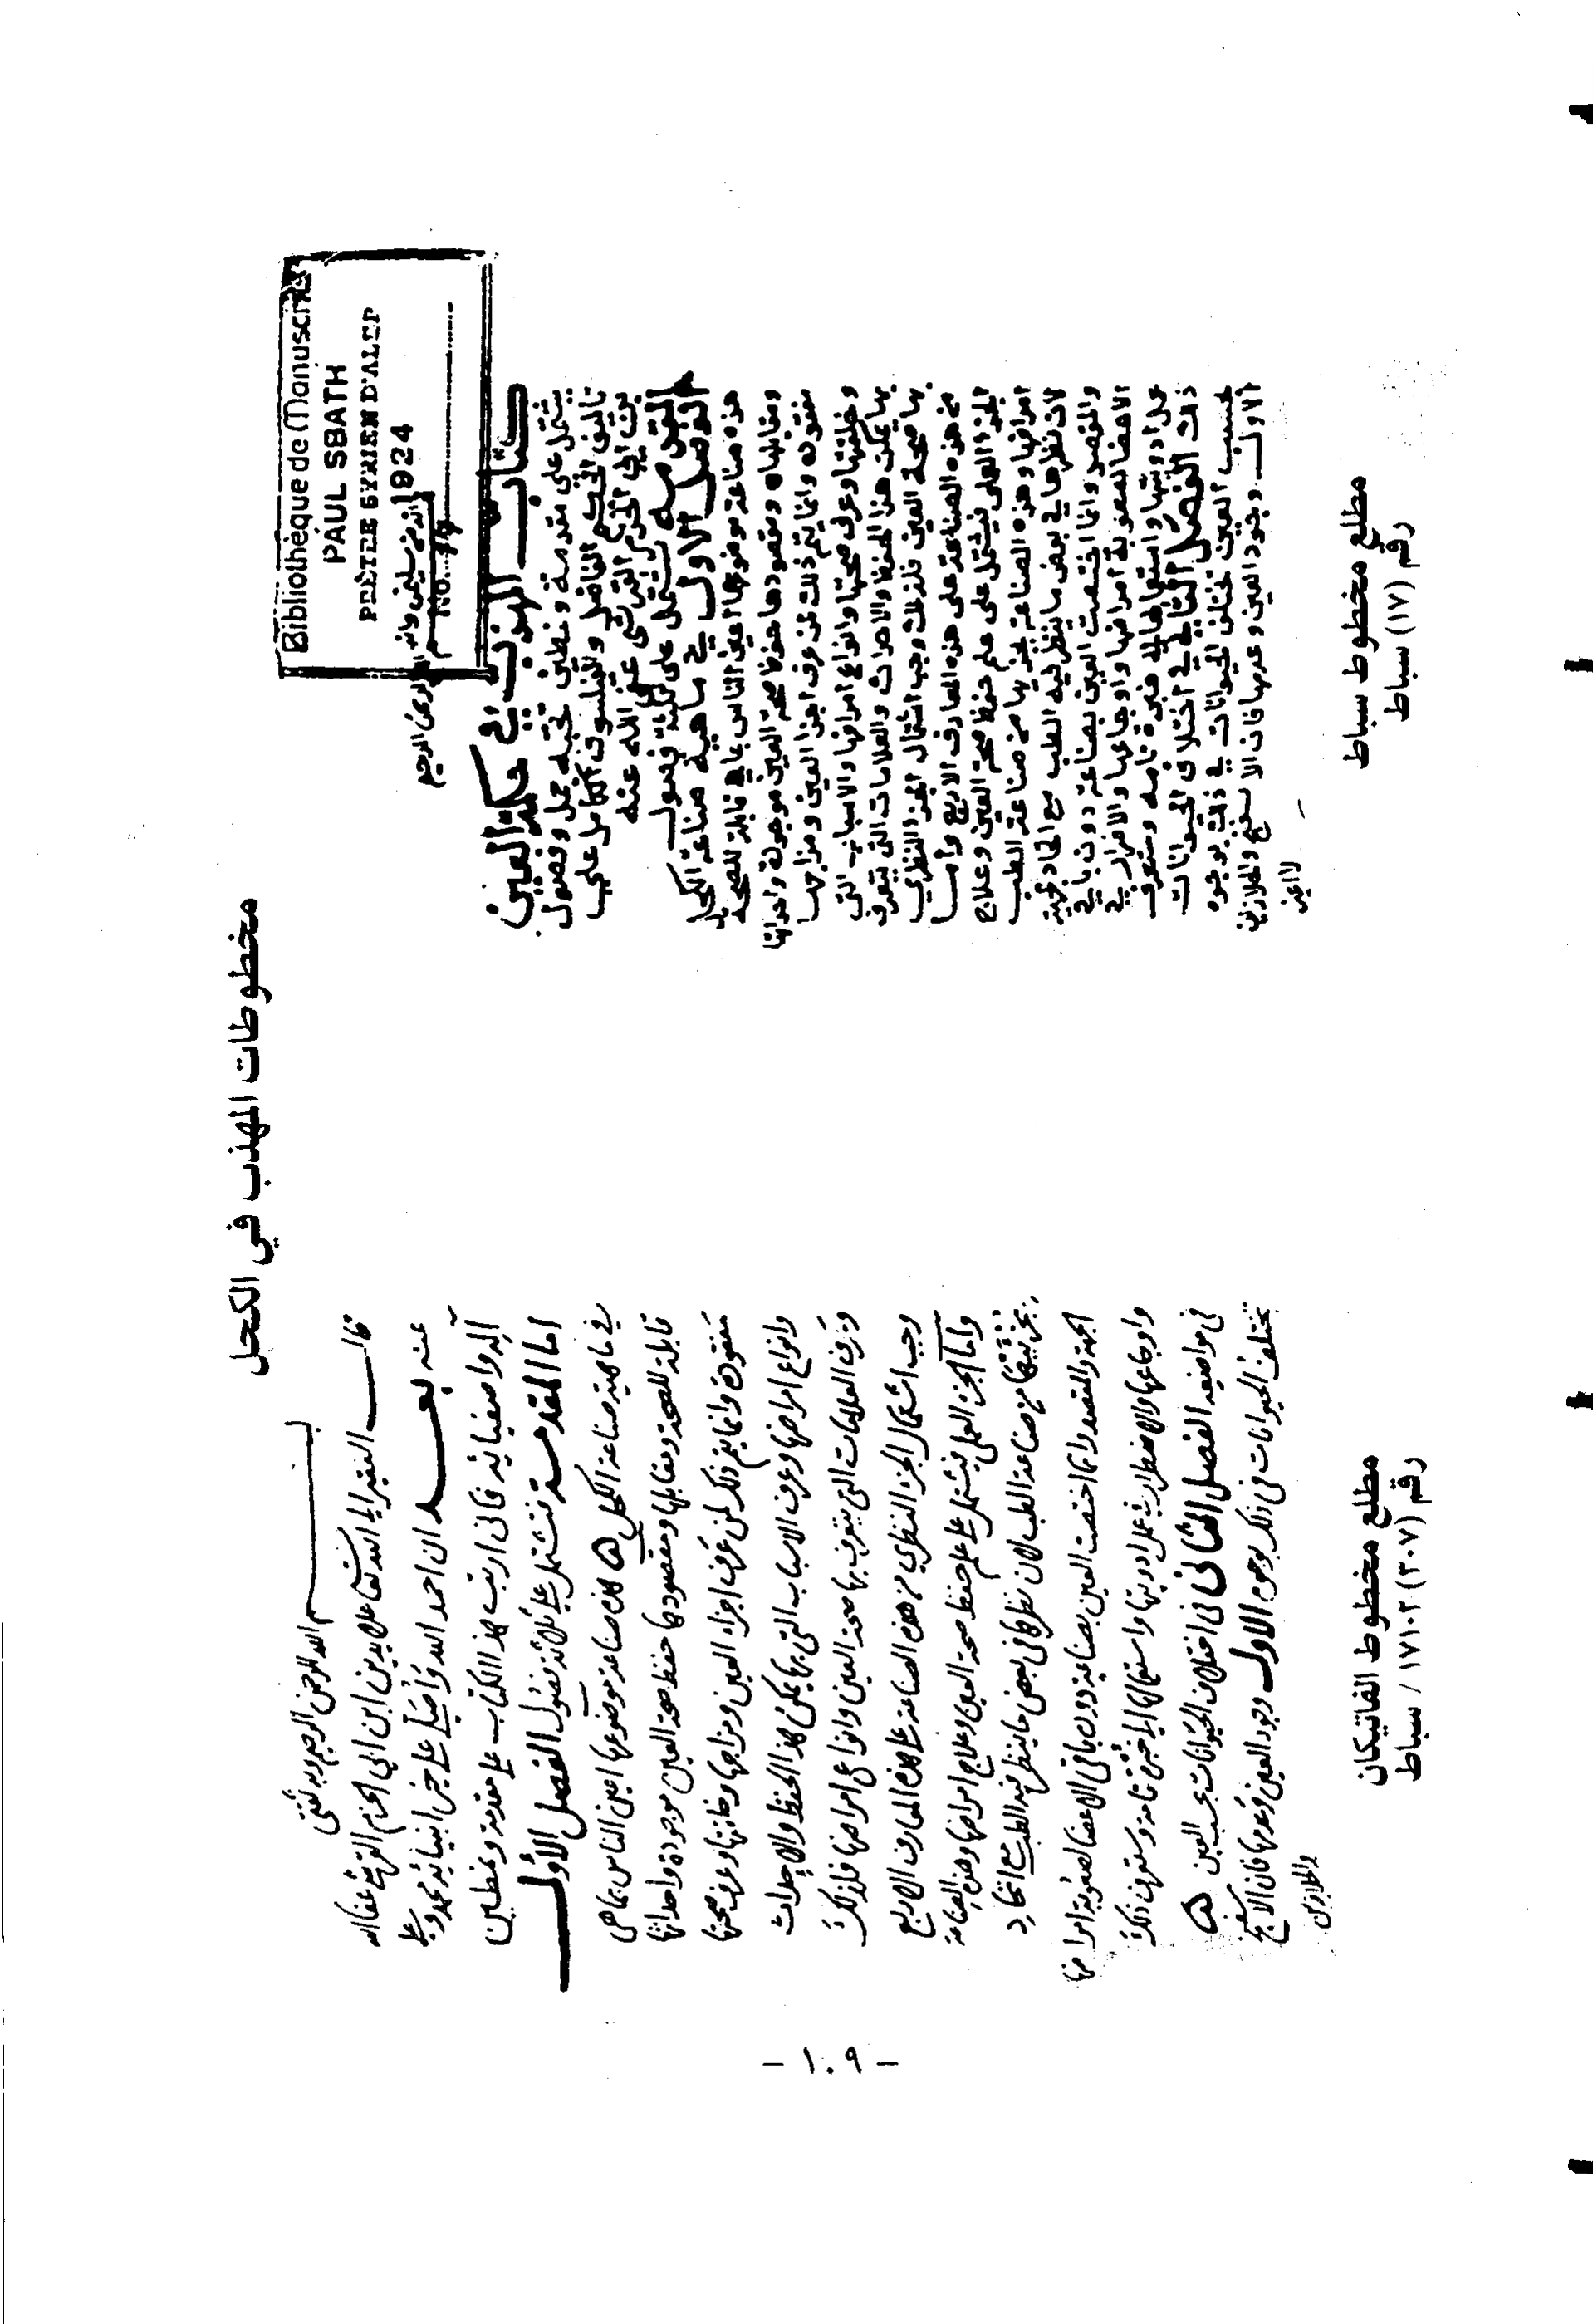 مخطوطات المهذب في الكحل
Bibliothèque de Manuscrits
PAUL SBATH
PRÊTRE SYRIEN D'ALEP
1924
No.
كتاب المهذب في حكمة العين
يشتمل على مقدمة ونمطين تحتهما جمل وفصول
تاليف الحكيم الفاضل والفيلسوف الكامل علي
بن ابي الحزم القرشي عفى الله عنه
المقدمة تشتمل على ثلاثة فصول
الفصل الاول في ماهية صناعة الكحل
هذه صناعة موضوعها اعين الناس بما هي قابلة للصحة
ومقابلها ومقصودها حفظ صحة العين موجودة واحداثها
مفقودة وانما يتم ذلك لمن عرف اجزا العين ومزاجها
وخلقتها وعرف صحتها وانواع امراضها والاسباب التي
بها يمكن هذا الحفظ والاحداث والعلامات التي يتعرف
بها صحة العين فلذلك وجب اشتمال الجزء النظري
من هذه الصناعة على هذه المعارف الاربع وأما
الجزء العملي فيشتمل على علم حفظ صحة العين وعلاج
امراضها وهذه الصناعة بجزئيها من صناعة الطب
لان نظرها في بعض ما ينظر فيه الطب مع اتحاد الجهة
والمقصد وانما اختصت العين بصناعة دون باقي
الاعضا لصعوبة امراضها واوجاعها والاضرار في
عمل ادويتها واستعمالها الى خبرة تامه وستعرف
ذلك الفصل الثاني في اختلاف الحيوانات
بحسب العين تختلف الحيوانات في ذلك بوجوه
الاول وجود العين وعدمها فان الاسفنج والحلازين
لا اعين
مطلع مخطوط سباط
رقم (١٧) سباط
بسم الله الرحمن الرحيم وبه ثقتي
قال الفقير الى الله تعالى علاء الدين ابن ابي الحزم القرشي عفا الله
عنه بعد ان احمد الله واصلي على خير انبيائه محمد وعلى
آله واصفيائه فاني ارتب هذا الكتاب على مقدمة ونمطين
اما المقدمة فتشتمل على ثلاثة فصول الفصل الأول
في ماهية صناعة الكحل هذه صناعة موضوعها اعين الناس بما هي
قابلة للصحة ومقابلها ومقصودها حفظ صحة العين موجودة واحداثها
مفقودة وانما يتم ذلك لمن عرف اجزاء العين ومزاجها وخلقتها وعرف صحتها
وانواع امراضها وعرف الاسباب التي بها يمكن هذا الحفظ والاحداث
وعرف العلامات التي يتعرف بها صحة العين وانواع امراضها فلذلك
وجب اشتمال الجزء النظري من هذه الصناعة على هذه المعارف الاربع
وأما الجزء العملي فيشتمل على علم حفظ صحة العين وعلاج امراضها وهذه الصناعة
بجزئيها من صناعة الطب لان نظرها في بعض ما ينظر فيه الطب مع اتحاد
الجهة والمقصد وانما اختصت العين بصناعة دون باقي الاعضا لصعوبة امراضها
واوجاعها والاضطرار في عمل ادويتها واستعمالها الى خبرة تامة وستعرف ذلك
في مواضعه الفصل الثاني في اختلاف الحيوانات بحسب العين
تختلف الحيوانات في ذلك بوجوه الاول وجود العين وعدمها فان الاسفنج
والحلازين
مطلع مخطوط الفاتيكان
رقم (٣٠٧) ١٧١٠٢ / سباط
- ١٠٩ -